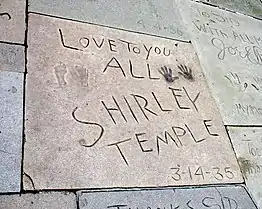 LOVE TO YOU
ALL
SHIRLEY
TEMPLE
3-14-35
WITH ALL
THANKS SID